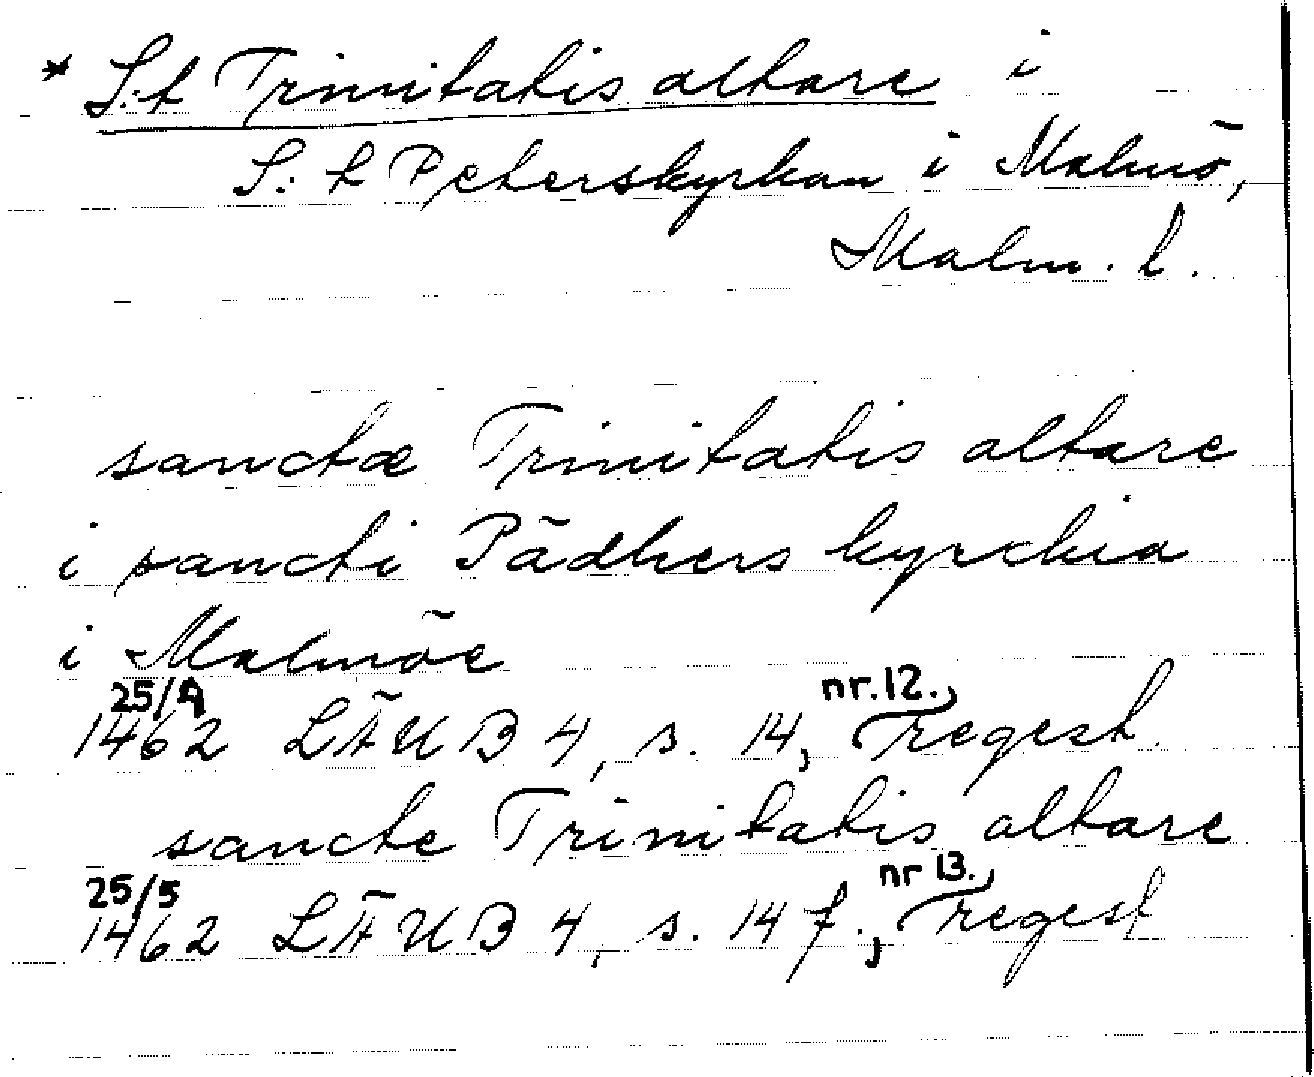 * S:t Trinitatis altare i
S:t Peterskyrkan i Malmö,
Malm. l.
sanctæ Trinitatis altare
i sancti Pädhers kyrckia
i Malmöe
25/4 nr. 12.,
1462 LÄUB 4, s. 14, regest.
sancte Trinitatis altare
25/5 nr 13.,
1462 LÄUB 4, s. 14 f., regest